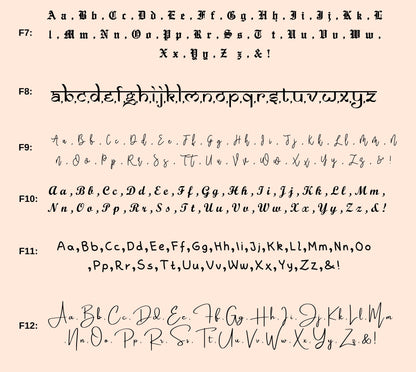 F7: Aa. Bb. Cc. Dd. Ee. Ff. Gg. Hh. Ii. Jj. Kk. L
l. Mm. Nn. Oo. Pp. Rr. Ss. Tt. Uu. Vv. Ww.
Xx. Yy. Zz. &!
F8: a.b.c.d.e.f.g.h.i.j.k.l.m.n.o.p.q.r.s.t.u.v.w.x.y.z
F9: Aa. Bb. Cc. Dd. Ee. Ff. Gg. Hh. Ii. Jj. Kk. Ll. Mm. N
n. Oo. Pp. Rr. Ss. Tt. Uu. Vv. Ww. Xx. Yy. Zz. &!
F10: Aa, Bb, Cc, Dd, Ee, Ff, Gg, Hh, Ii, Jj, Kk, Ll, Mm,
Nn, Oo, Pp, Rr, Ss, Tt, Uu, Vv, Ww, Xx, Yy, Zz, &!
F11: Aa,Bb,Cc,Dd,Ee,Ff,Gg,Hh,Ii,Jj,Kk,Ll,Mm,Nn,Oo
,Pp,Rr,Ss,Tt,Uu,Vv,Ww,Xx,Yy,Zz,&!
F12: Aa. Bb. Cc. Dd. Ee. Ff. Gg. Hh. Ii. Jj. Kk. Ll. Mm
. Nn. Oo. Pp. Rr. Ss. Tt. Uu. Vv. Ww. Xx. Yy. Zz. &!